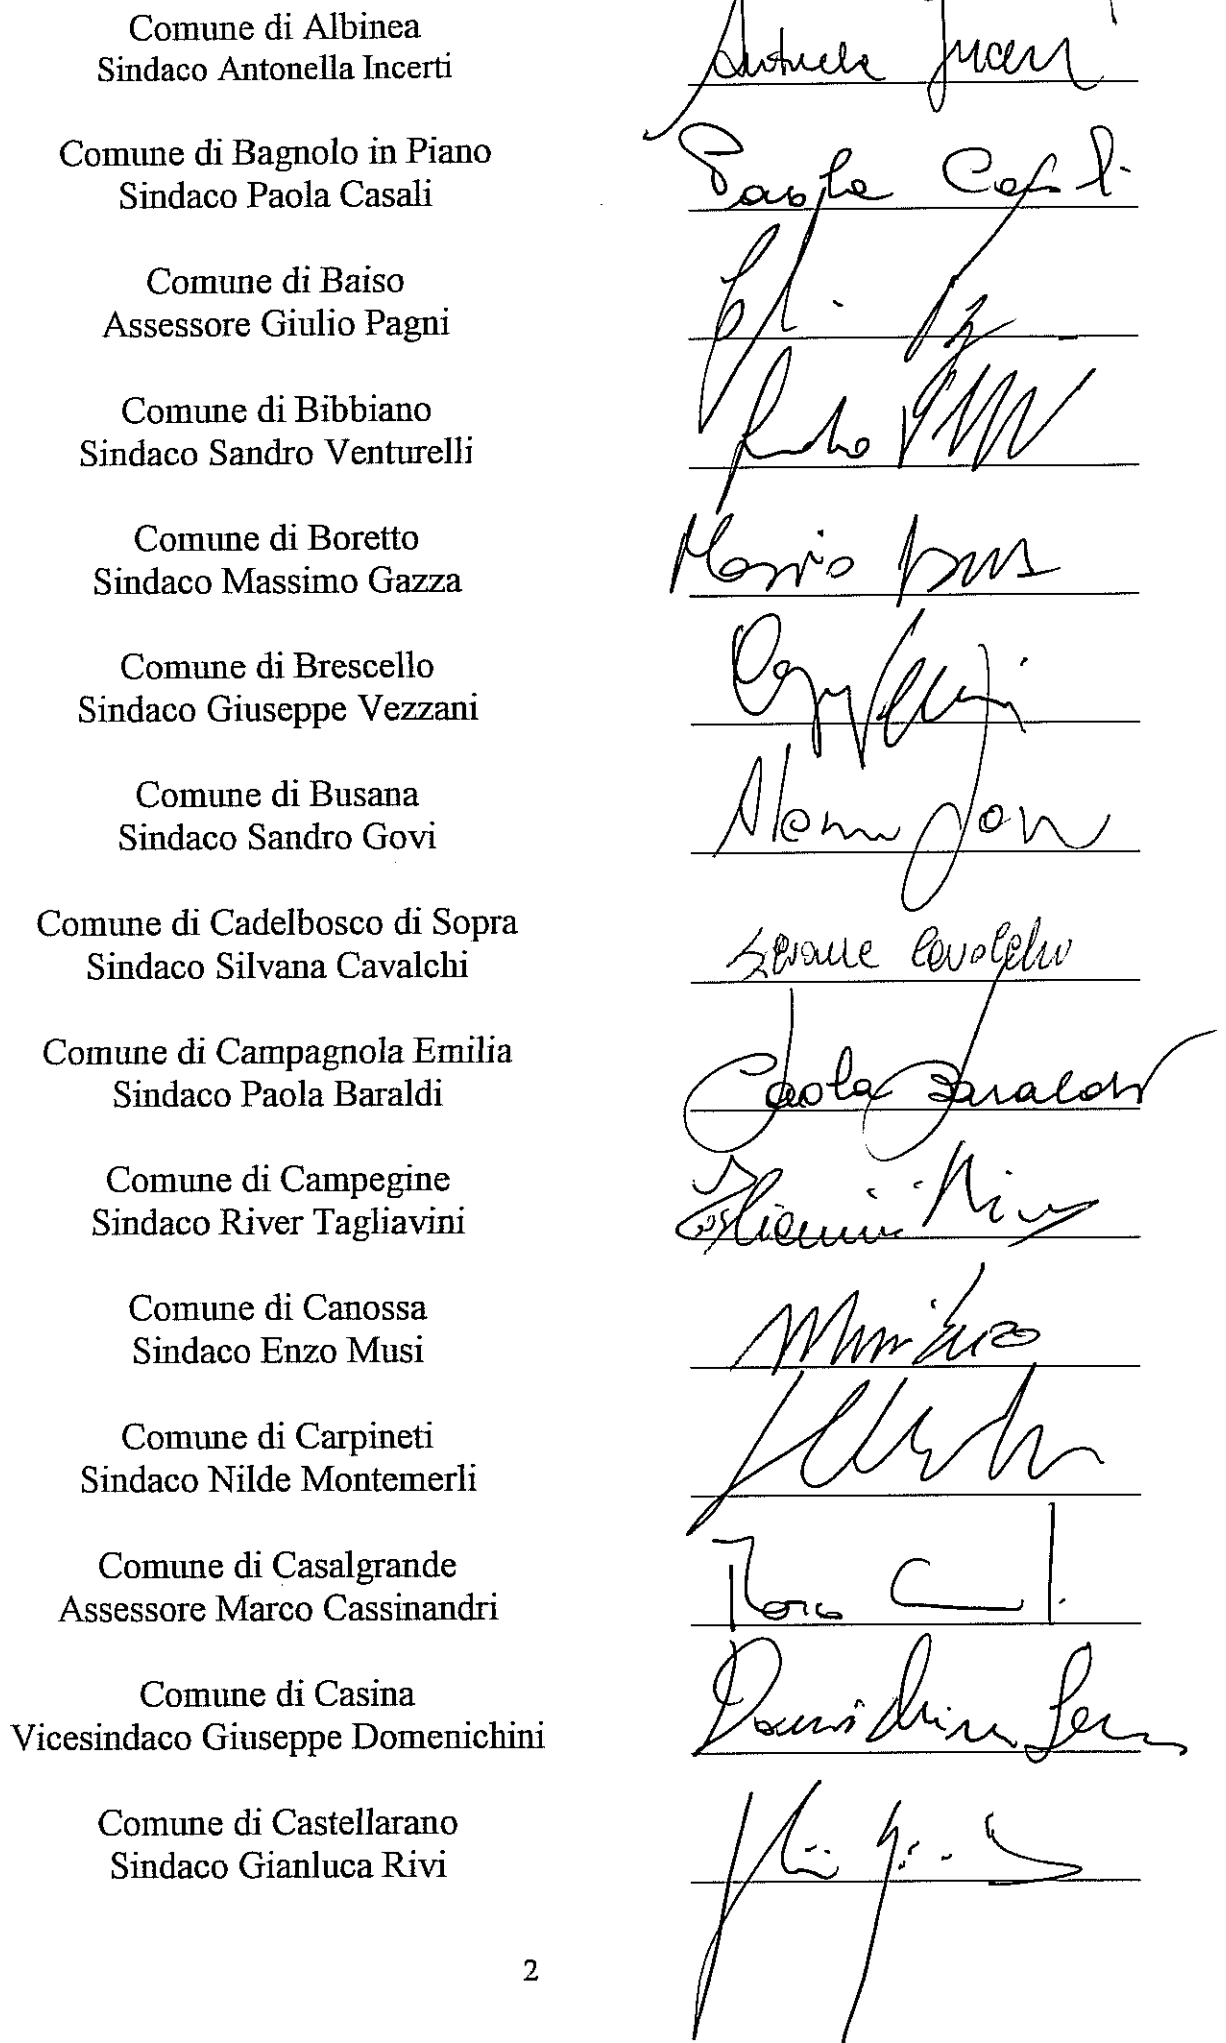 Comune di Albinea
Sindaco Antonella Incerti
Comune di Bagnolo in Piano
Sindaco Paola Casali
Paola Casali
Comune di Baiso
Assessore Giulio Pagni
Comune di Bibbiano
Sindaco Sandro Venturelli
Comune di Boretto
Sindaco Massimo Gazza
Comune di Brescello
Sindaco Giuseppe Vezzani
Comune di Busana
Sindaco Sandro Govi
Comune di Cadelbosco di Sopra
Sindaco Silvana Cavalchi
Silvana Cavalchi
Comune di Campagnola Emilia
Sindaco Paola Baraldi
Paola Baraldi
Comune di Campegine
Sindaco River Tagliavini
Comune di Canossa
Sindaco Enzo Musi
Comune di Carpineti
Sindaco Nilde Montemerli
Comune di Casalgrande
Assessore Marco Cassinandri
Comune di Casina
Vicesindaco Giuseppe Domenichini
Comune di Castellarano
Sindaco Gianluca Rivi
2